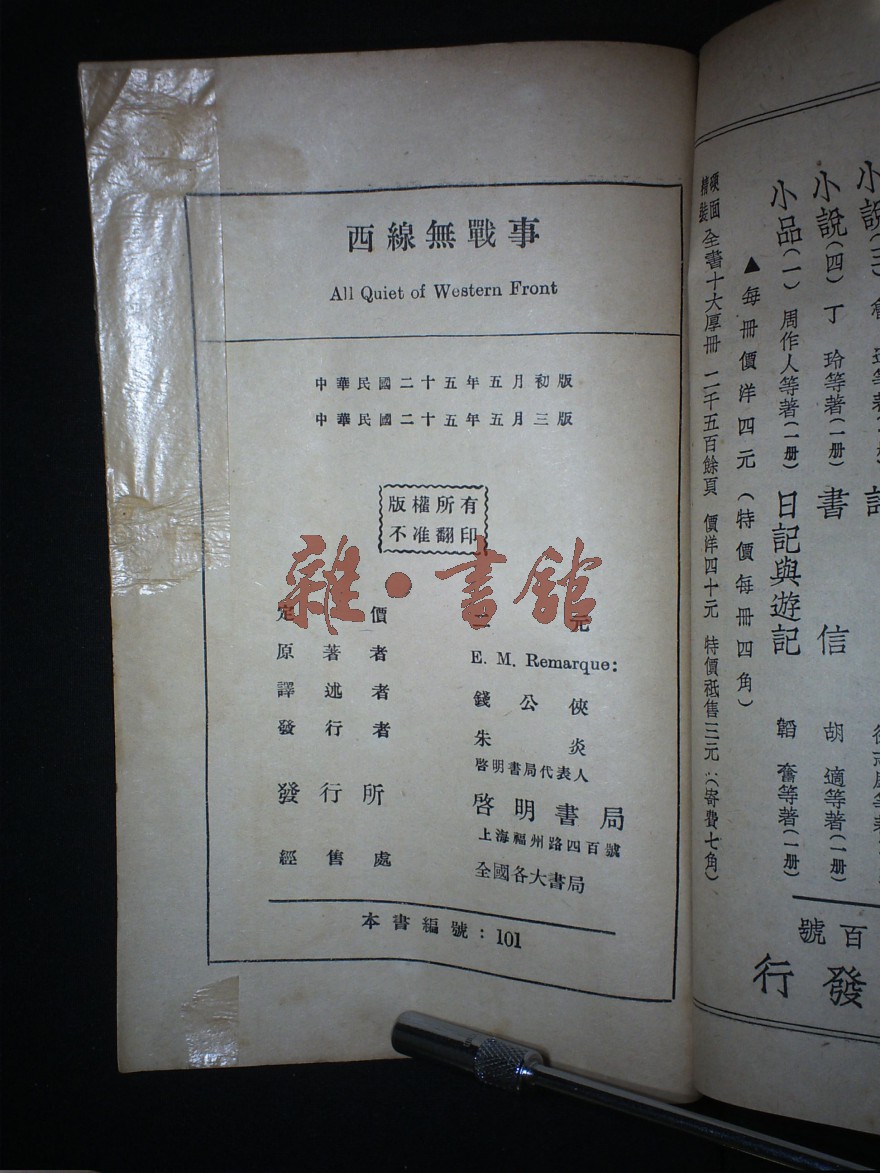 西線無戰事
All Quiet of Western Front
中華民國二十五年五月初版
中華民國二十五年五月三版
版權所有
不准翻印
雜·書館
定價 元
原著者 E. M. Remarque:
譯述者 錢公俠
發行者 朱炎
啓明書局代表人
發行所 啓明書局
上海福州路四百號
經售處 全國各大書局
本書編號：101
小說(三)
小說(四) 丁玲等著(一册) 書信 胡適等著(一册)
小品(一) 周作人等著(一册) 日記與遊記 韜奮等著(一册)
▲每冊價洋四元(特價每冊四角)
硬面精裝 全書十大厚冊 二千五百餘頁 價洋四十元 特價祗售三元(寄費七角)
百號
發行